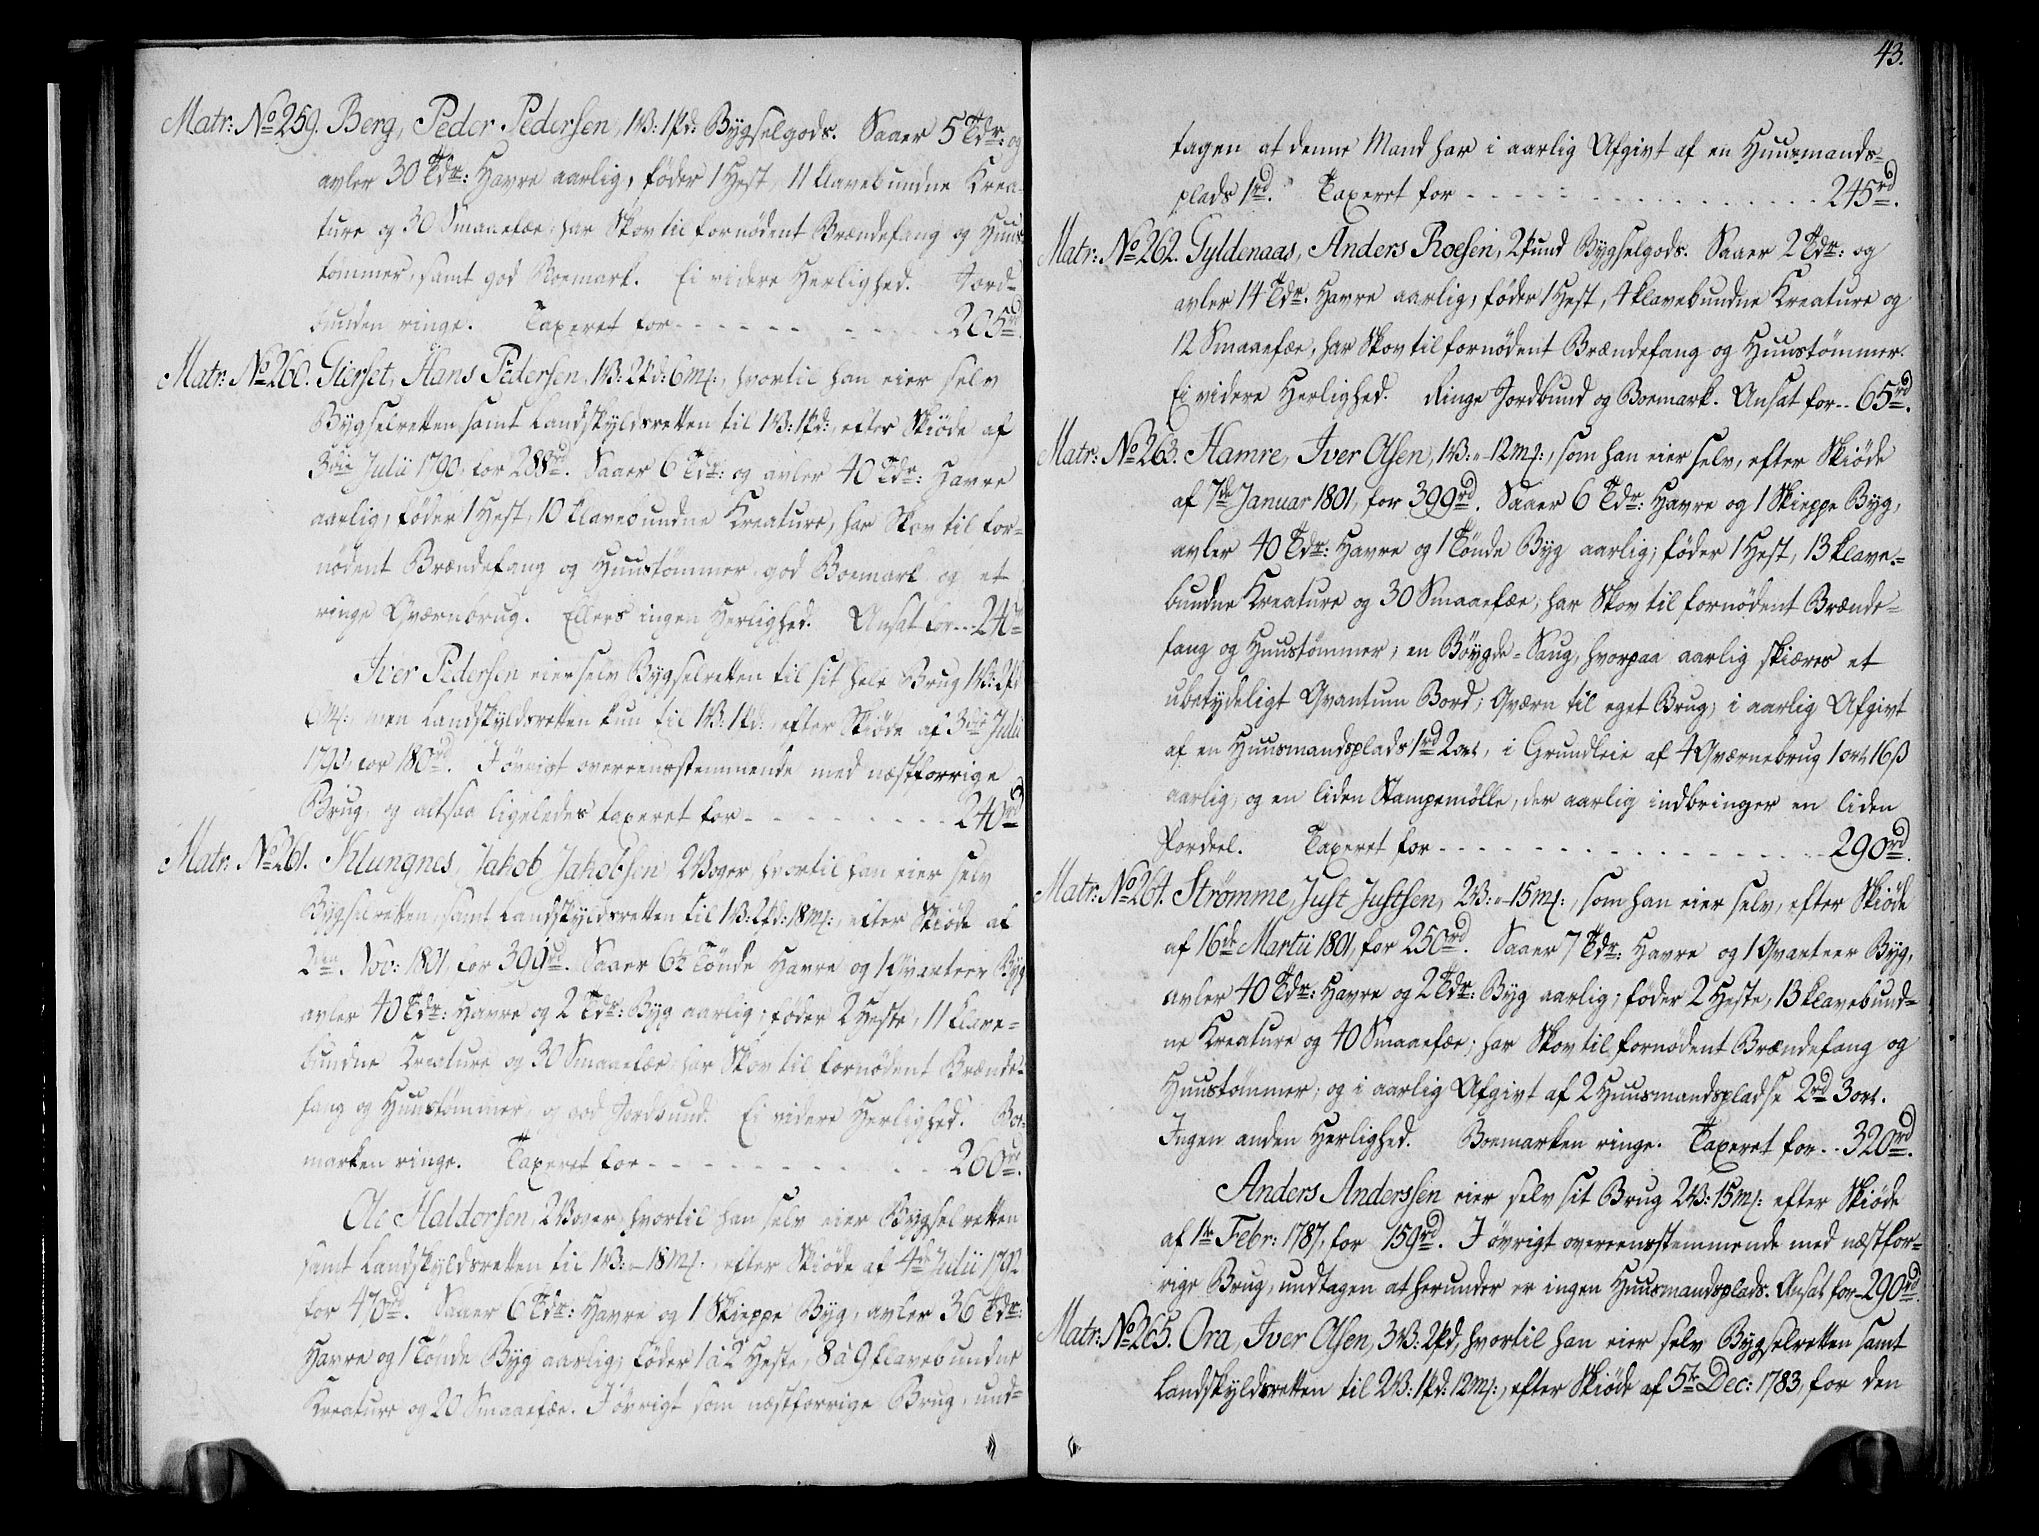 Matr: No 259. Berg, Peder Pedersen, 1W: 1Pd: Bygselgods. Saaer 5 Tdr: og
avler 30 Tdr: Havre aarlig, föder 1 Hest, 11 klavebundne Krea-
ture og 30 Smaaefæe, har Skov til fornödent Brændefang og Huus-
tömmer, samt god Boemark. Ei videre Herlighed. Jord-
bunden ringe. Taxeret for - - - - - - 205rd.
Matr: No 260. Gierset, Hans Pedersen, 1W: 2Pd: 6mf:, hvortil han eier selv
Bygselretten, samt Landskyldsretten til 1W: 1Pd:, efter Skiöde af
3die Julii 1790, for 288rd. Saaer 6 Tdr: og avler 40 Tdr: Havre
aarlig, föder 1 Hest, 10 klavebundne Kreature, har Skov til for-
nödent Brændefang og Huustömmer, god Boemark og et
ringe Qværnbrug. Ellers ingen Herlighed. Ansat for - - 240
Iver Pedersen eier selv Bygselretten til sit hele Brug 1W: 2Pd
6mf:, men Landskyldsretten kun til 1W: 1Pd:, efter Skiöde af 3die Julii
1790, for 180rd. I övrigt overeensstemmende med næstforrige
Brug, og altsaa ligeledes taxeret for - - - - - - 240rd
Matr: No 261. Klungnes, Jakob Jakobsen, 2 Woger, hvortil han eier selv
Bygselretten, samt Landskyldsretten til 1W: 2Pd: 18mf:, efter Skiöde af
2den Nov: 1801, for 399rd. Saaer 6½ Tönde Havre og 1 Qvarteer Byg
avler 40 Tdr: Havre og 2 Tdr: Byg aarlig; föder 2 Heste, 11 klave-
bundne Kreature og 30 Smaaefæe, har Skov til fornödent Brænde-
fang og Huustömmer, og god Jordbund. Ei videre Herlighed. Boe-
marken ringe. Taxeret for - - - - - - 260rd.
Ole Haldorsen, 2 Woger, hvortil han selv eier Bygselretten
samt Landskyldsretten til 1W: - 18mf:, efter Skiöde af 4de Julii 1792
for 470rd. Saaer 6 Tdr: Havre og 1 Skieppe Byg, avler 36 Tdr:
Havre og 1 Tönde Byg aarlig; föder 1 à 2 Heste, 8 à 9 klavebundne
Kreature og 20 Smaaefæe. I övrigt som næstforrige Brug, und-
43.
tagen at denne Mand har i aarlig Afgivt af en Huusmands-
plads 1rd. Taxeret for - - - - - - 245rd.
Matr: No 262. Gyldenaas, Anders Roesen, 2 Pund Bygselgods. Saaer 2 Tdr: og
avler 14 Tdr. Havre aarlig, föder 1 Hest, 4 klavebundne Kreature og
12 Smaaefæe, har Skov til fornödent Brændefang og Huustömmer.
Ei videre Herlighed. Ringe Jordbund og Boemark. Ansat for - - 65rd.
Matr: No 263. Hamre, Iver Olsen, 1W: - 12mf:, som han eier selv, efter Skiöde
af 7de Januar 1801, for 399rd. Saaer 6 Tdr: Havre og 1 Skieppe Byg,
avler 40 Tdr: Havre og 1 Tönde Byg aarlig; föder 1 Hest, 13 klave-
bundne Kreature og 30 Smaaefæe; har Skov til fornödent Brænde-
fang og Huustömmer; en Böygde-Saug, hvorpaa aarlig skiæres et
ubetydeligt Qvantum Bord; Qværn til eget Brug; i aarlig Afgivt
af en Huusmandsplads 1rd 2ort, i Grundleie af 4 Qværnebrug 1ort 16ß
aarlig, og en liden Stampemölle, der aarlig indbringer en liden
Fordeel. Taxeret for - - - - - - 290rd.
Matr: No 264. Strömme, Just Justsen, 2W: - 15mf:, som han eier selv, efter Skiöde
af 16de Martii 1801, for 250rd. Saaer 7 Tdr: Havre og 1 Qvarteer Byg,
avler 40 Tdr: Havre og 2 Tdr: Byg aarlig; föder 2 Heste, 13 klavebund-
ne Kreature og 40 Smaaefæe; har Skov til fornödent Brændefang og
Huustömmer; og i aarlig Afgivt af 2 Huusmandspladse 2rd 3ort.
Ingen anden Herlighed. Boemarken ringe. Taxeret for - - 320rd.
Anders Anderssen eier selv sit Brug 2W: 15mf: efter Skiöde
af 1ste Febr: 1787, for 159rd. I övrigt overeensstemmende med næstfor-
rige Brug, undtagen at herunder er ingen Huusmandsplads. Ansat for - 290rd.
Matr: No 265. Ora, Iver Olsen, 3W: 2Pd, hvortil han eier selv Bygselretten samt
Landskyldsretten til 2W: 1Pd: 12mf:, efter Skiöde af 5te Dec: 1783, for den